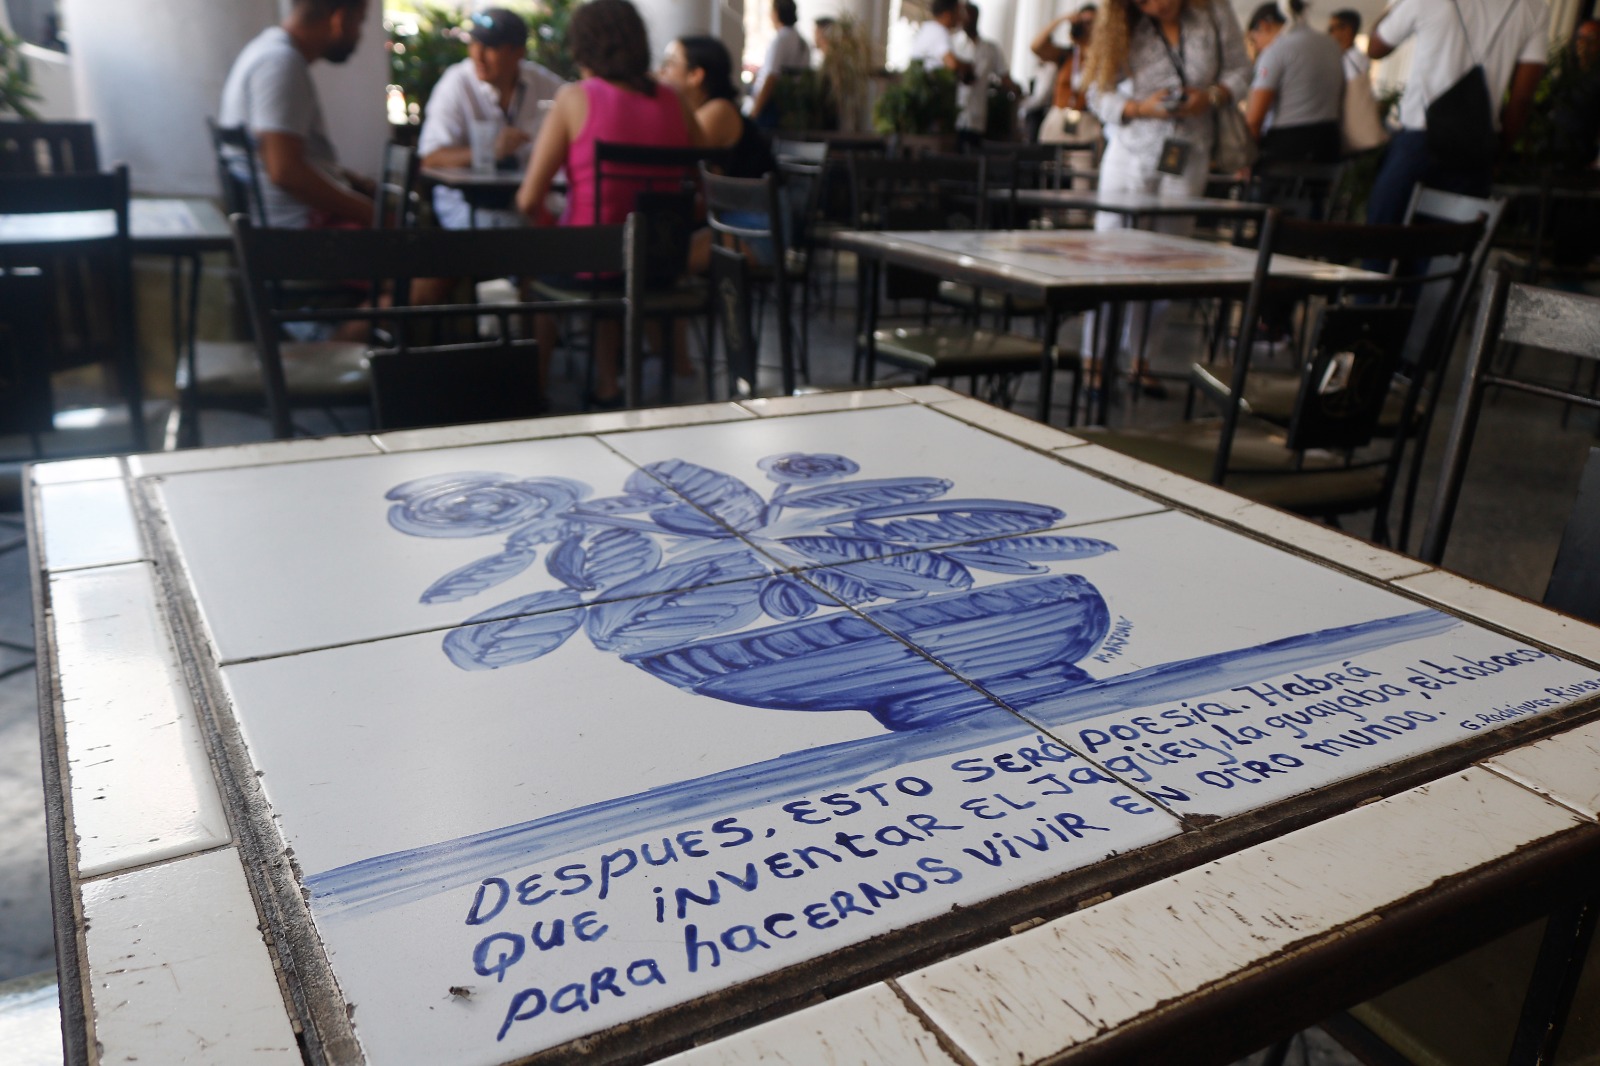 MARTONA
DESPUES, ESTO SERÁ POESÍA. HabRÁ
QUE iNVENtaR EL JAgüEy, La guayaba, El tabaco,
para hacERNOS ViViR EN OtRO mundO.
G. Rodríguez Rivera